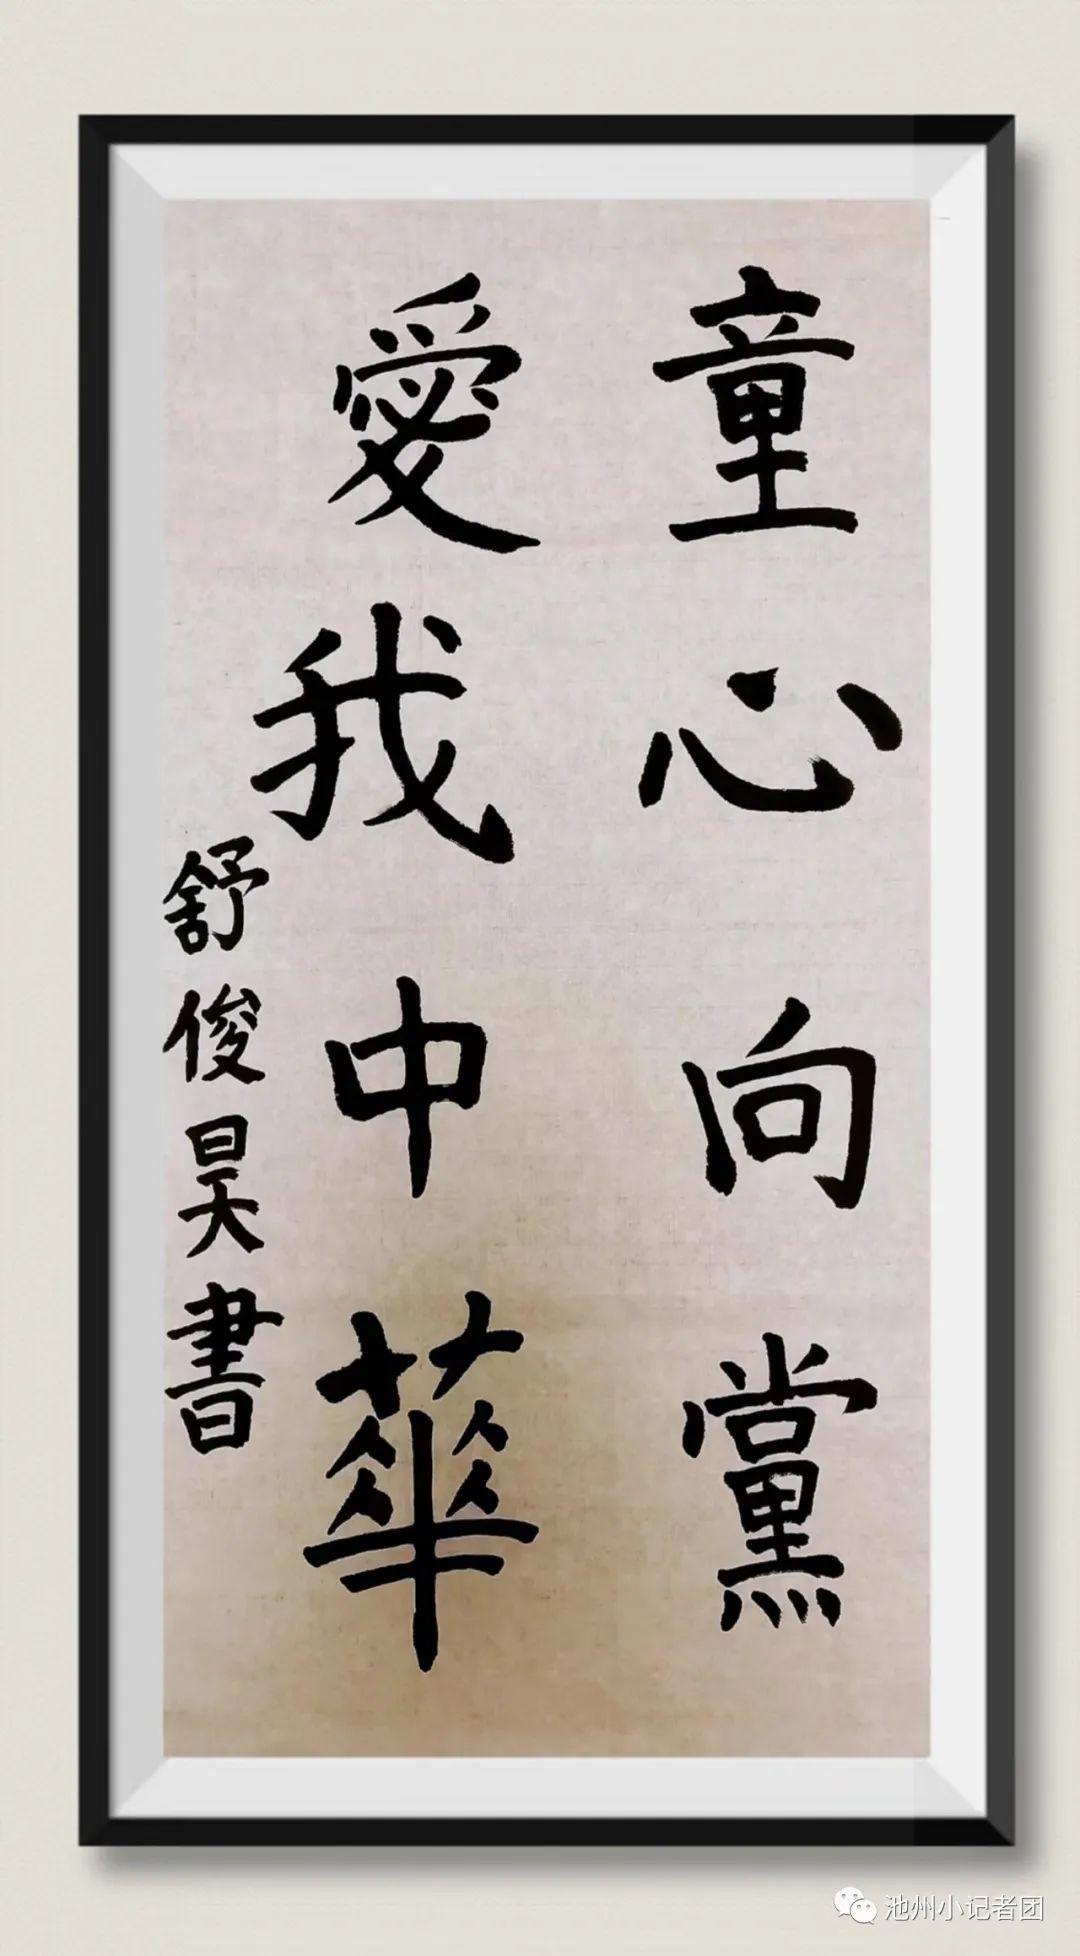 童心向黨
愛我中華
舒俊昊書
池州小记者团